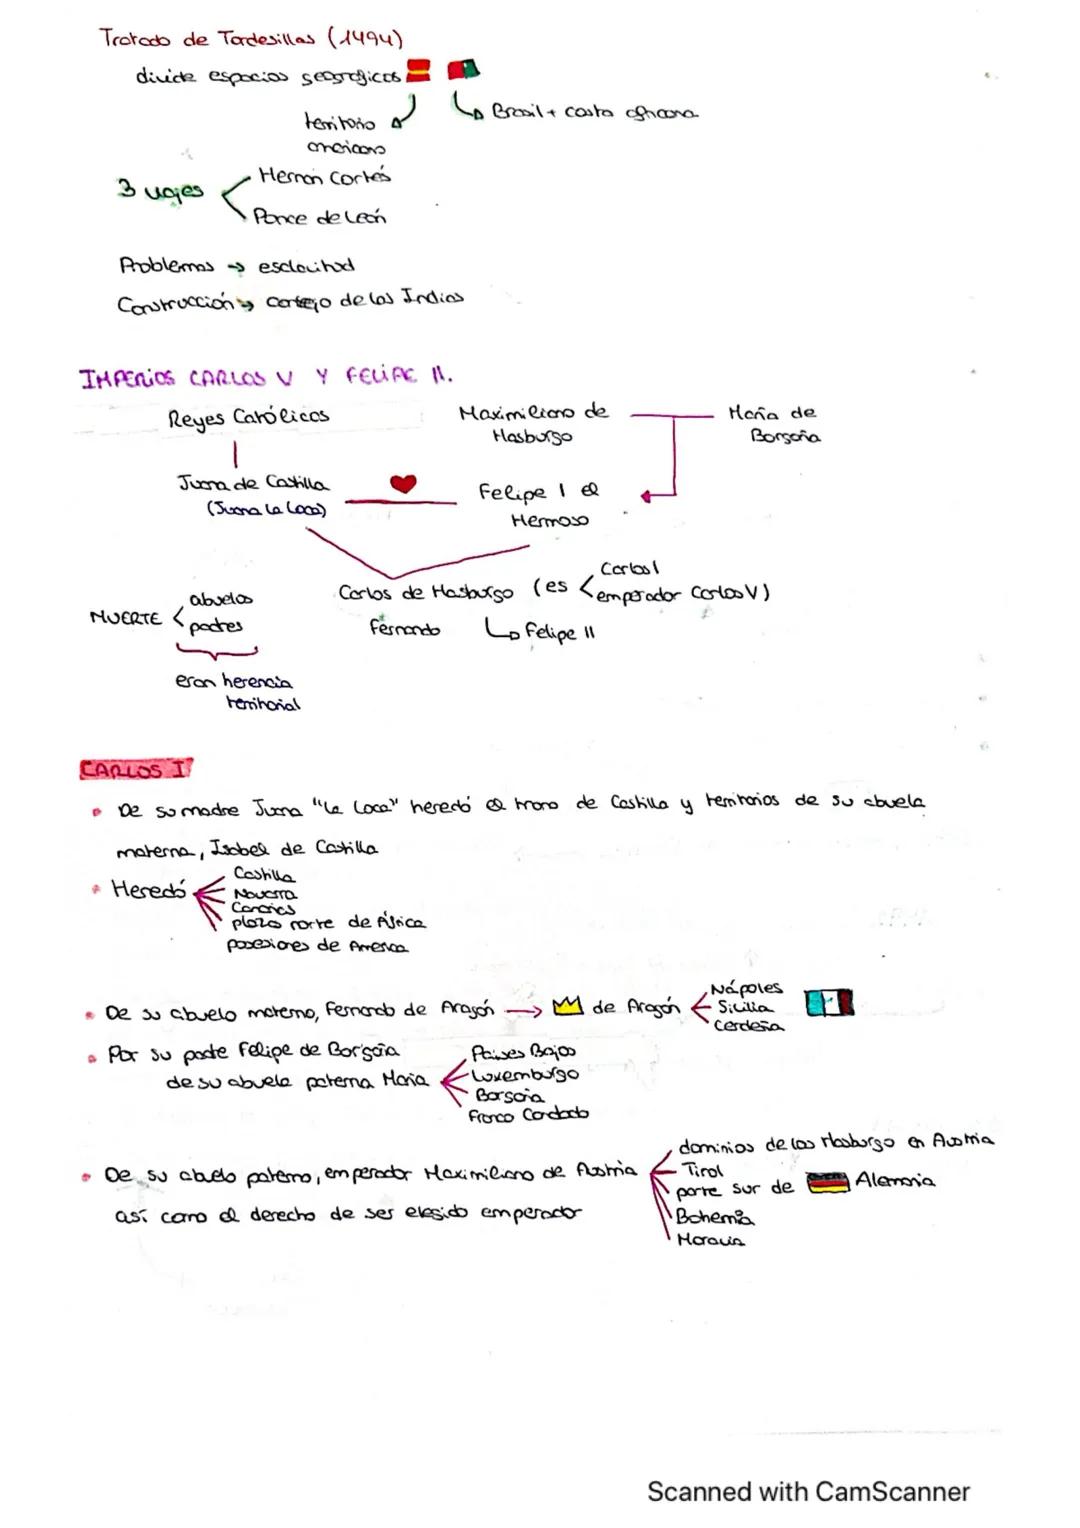 Tratado de Tordesillas (1494)
divide espacios geográficos
territorio
americano
Brasil + costa africana
3 viajes
Hernán Cortés
Ponce de León
Problemas → esclavitud
Construcción → consejo de las Indias
IMPERIOS CARLOS V Y FELIPE II.
Reyes Católicos
Maximiliano de
Hasburgo
María de
Borgoña
Juana de Castilla
(Juana La Loca)
Felipe I el
Hermoso
Carlos de Hasburgo (es
Carlos I
emperador Carlos V)
Fernando
↳ Felipe II
MUERTE
abuelos
padres
eran herencia
territorial
CARLOS I
• De su madre Juana "la Loca" heredó el trono de Castilla y territorios de su abuela
materna, Isabel de Castilla
• Heredó
Castilla
Navarra
Canarias
plazas norte de África
posesiones de America
• De su abuelo materno, Fernando de Aragón → de Aragón
Nápoles
Sicilia
Cerdeña
• Por su padre Felipe de Borgoña
de su abuela paterna Maria
Países Bajos
Luxemburgo
Borgoña
Franco Condado
• De su abuelo paterno, emperador Maximiliano de Austria
así como el derecho de ser elegido emperador
dominios de los Hasburgo en Austria
Tirol
parte sur de Alemania
Bohemia
Moravia
Scanned with CamScanner